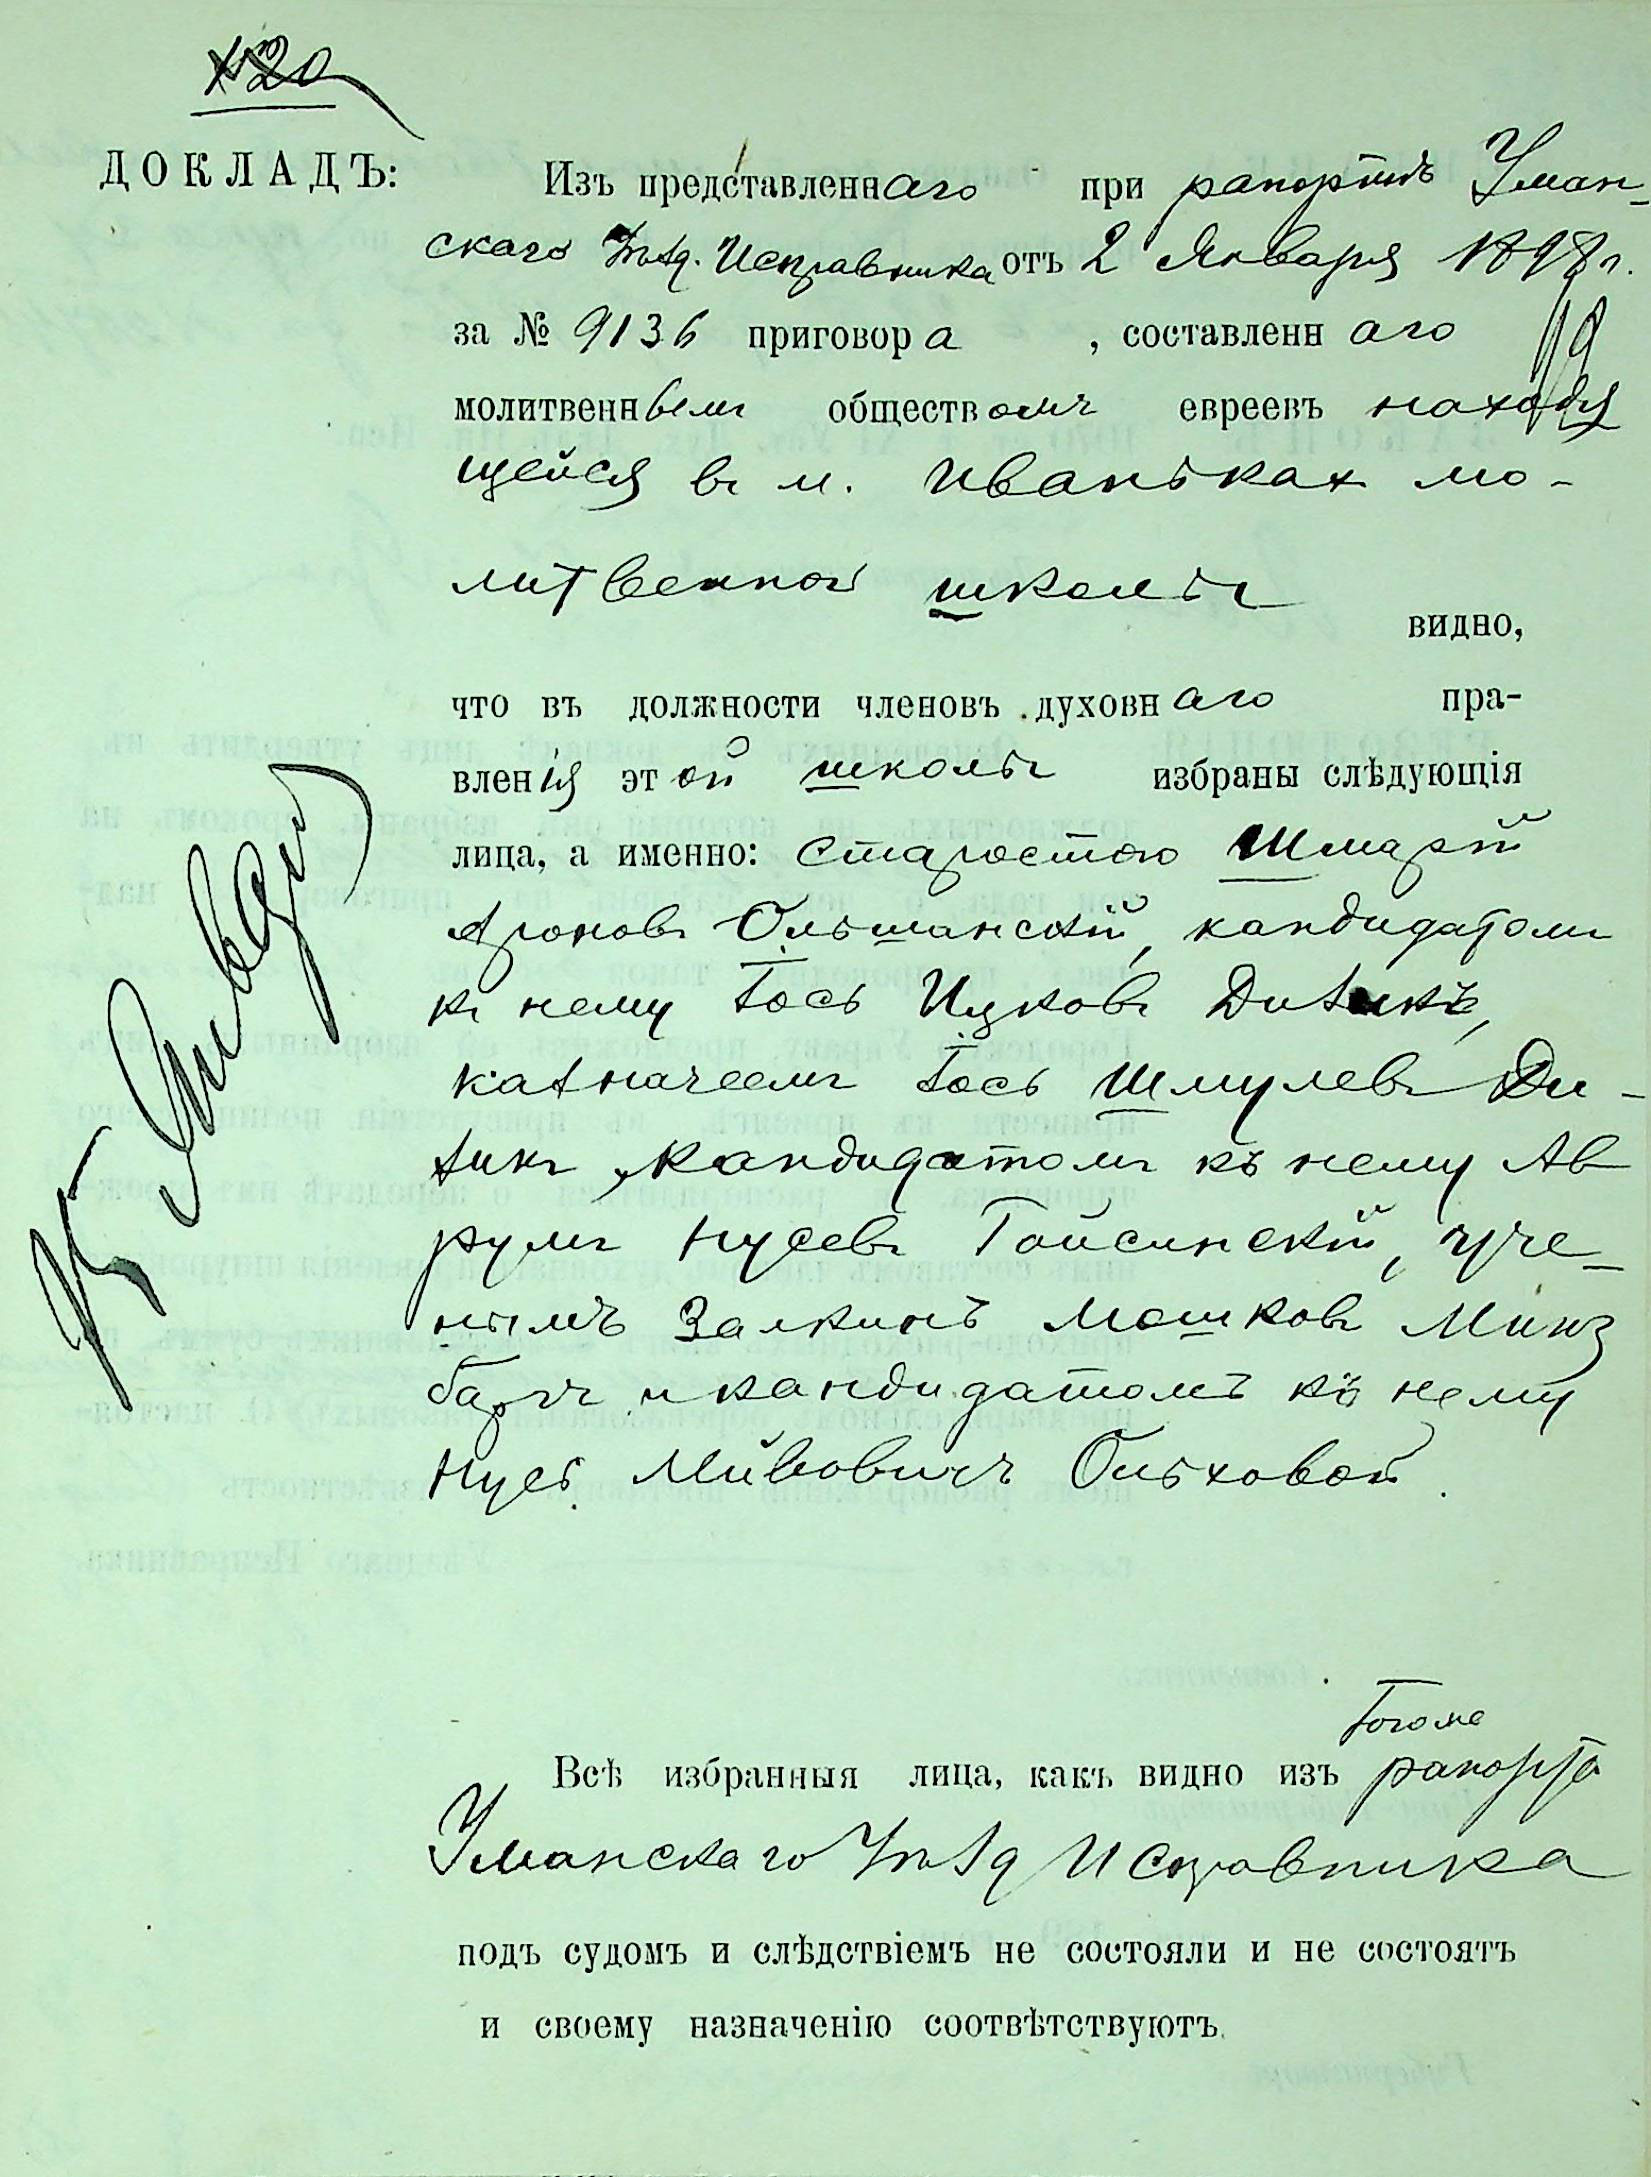 ДОКЛАДЪ:
Изъ представленнаго при рапортѣ Уман-
скаго Уѣзд. Исправника отъ 2 Января 1898 г.
за № 9136 приговора, составленнаго 19
молитвеннымъ обществомъ евреевъ находя
щейся въ м. Иваньках мо-
литвенной школы
видно,
что въ должности членовъ духовнаго пра-
вленія этой школы избраны слѣдующія
лица, а именно: старостою Шмарій
Ароновъ Ольшанскій, кандидатомъ
къ нему Іось Ицковъ Дизикъ,
казначеемъ Іось Шмулевъ Ди-
зикъ, кандидатомъ къ нему Ав
румъ Нусевъ Гайсинскій, уче-
нымъ Залкинъ Мошковъ Минз
баръ и кандидатомъ къ нему
Нусь Ольховой
тогоже
Всѣ избранныя лица, какъ видно изъ рапорта
Уманскаго Уѣзд Исправника
подъ судомъ и слѣдствіемъ не состояли и не состоятъ
и своему назначенію соотвѣтствуютъ.